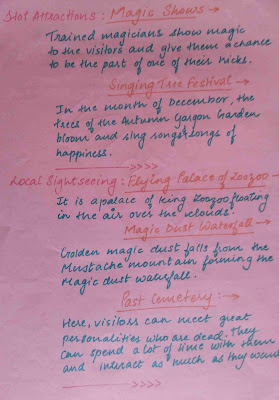 Hot Attractions: Magic Shows →
Trained magicians show magic
to the visitors and give them a chance
to be the part of one of their tricks.
Singing Tree Festival →
In the month of December, the
trees of the Autumn Gargon Garden
bloom and sing songs songs of
happiness.
>>>>
Local Sightseeing: Flying Palace of Zoozoo →
It is a palace of King Zoozoo floating
in the air over the clouds.
Magic Dust Waterfall →
Golden magic dust falls from the
Mustache mountain forming the
Magic dust waterfall.
Past Cemetery: →
Here, visitors can meet great
personalities who are dead. They
can spend a lot of time with them
and interact as much as they want
>>>>